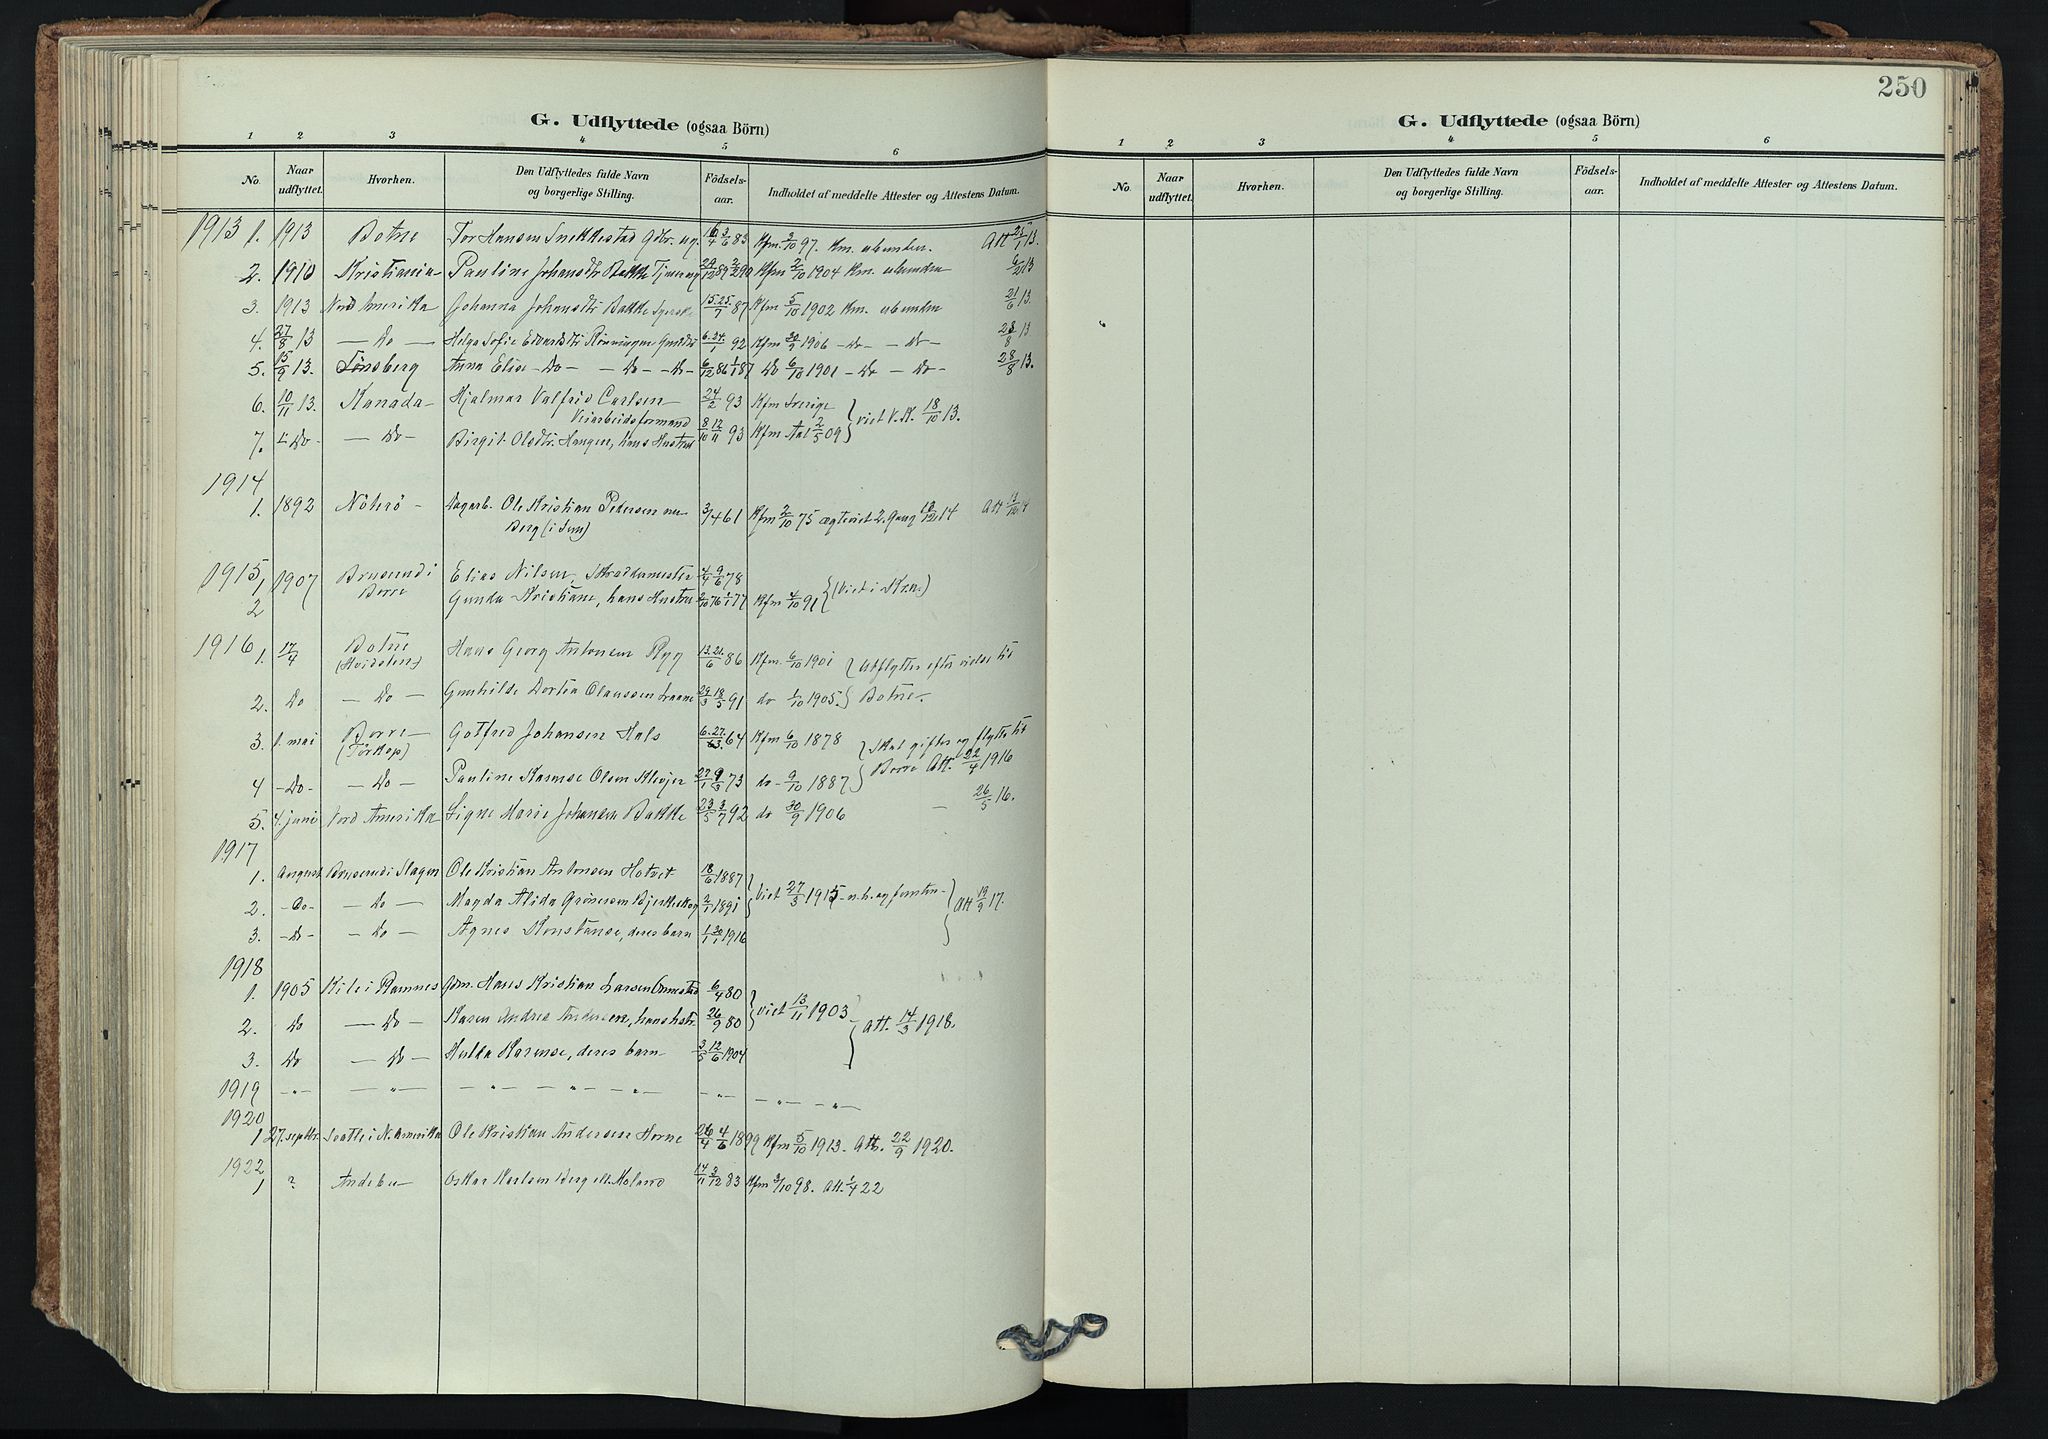 G. Udflyttede (ogsaa Börn)
1 2 3 4 5 6
No. Naar udflyttet. Hvorhen. Den Udflyttedes fulde Navn og borgerlige Stilling. Födsels-aar. Indholdet af meddelte Attester og Attestens Datum.
1913 1. 1913 Botne Tor Hansen Snekkestad Gdbr. ug. 16/4 3/6 83 Kfm. 3/10 97. Km. ubunden. Att 23/1 13.
2. 1910 Kristiania Pauline Johansdtr Bakke 29/12 89 2/2 90 Kfm 2/10 1904 Km. ubunden 6/2 13
3. 1913 Nord Amerika Johanna Johansdtr Bakke 15. 25./7 87 Kfm 5/10 1902 Km. ubunden 21/6 13.
4. 27/8 13 — Do — Helga Sofie Edvardsdtr Rönningen 6. 24./1 92 Kfm 30/9 1906 - Do - - Do - 23/8 13
5. 15/9 13. Tönsberg Anna Elise - Do - - Do - - Do - 6/12 86 1/1 87 Do 6/10 1901 - Do - Do - 28/8 13.
6. 10/11 13. Kanada Hjalmar Valfrid Carlsen 24/2 93 Kfm Sverige
Veiarbeidsformand } viet V.K. 18/10 13.
7. - Do - — Do - Birgit Olsdtr. Haugen, hans Hustru 8/10 12/11 93 Kfm Aal 2/5 09
1914
1. 1892 Nöterö - Dagarb. Ole Kristian Petersen 3/4 61 Kfm 2/10 75 ægteviet 2. Gang 12/12 14 Att
Berg (i Sem)
1915 1 1907 Bruserud i Borre Elias Nilsen, Skreddermester 4/4 9/6 78
2 Gunda Kristiane, hans Hustru 2/10 76 1/1 77 Kfm 4/10 91 { (Viet i Kr.a.)
1916 1. 17/4 Botne (Hvidsten) Hans Georg Antonsen Ryg 13. 21./6 86 Kfm. 6/10 1901 { Udflytter efter vielse til
2. Do — Do — Gunhilde Dortea Olaussen 29/3 18/5 91 do 1/10 1905. } Botne -
3. 1. mai Borre (Törkop) Gotfred Johansen Hals 6. 27. 64 Kfm 6/10 1878 { Skal giftes og flytte til
4 - Do - — Do — Pauline Karense Olsen Klevjer 27/1 9/3 73 do - 9/10 1887 } Borre Att. 22/4 1916
5. 4. juni Nord Amerika Signe Marie Johansen Bakke 23/5 3/7 92 do 30/9 1906 — 26/5 16.
1917
1. August Bruserud i Slagen Ole Kristian Antonsen Hotvet 18/6 1887 } Viet 27/3 1915
2. - Do - — Do — Magda Alida Grönersen Bjerkeskog 2/1 1891 } Att 19/9 17.
3. - Do - - Do - Agnes Konstanse, deres barn 1/1 30/1 1916
1918
1. 1905 Kile i Ramnes Gdm. Hans Kristian Larsen 6/4 80 } viet 13/11 1903 -
2. Do — Do — Karen Andrea Andersen, hans hstr. 26/9 80 } Att. 14/3 1918.
3. Do — Do — Hulda Karense, deres barn 3/5 12/6 1904
1919 - „ - — „ — — „ - — „ — „ - - „ - — „ — „ —
1920
1 27. septbr. Seattle i N. Amerika Ole Kristian Andersen Horne 26/4 4/6 1899 Kfm 5/10 1913. Att. 22/9 1920.
1922
1 ? Andebu Oskar Karlsen Berg ell. Moland 14/11 2/12 83 Kfm 2/10 98. Att. 1/4 22
250
G. Udflyttede (ogsaa Börn)
1 2 3 4 5 6
No. Naar udflyttet. Hvorhen. Den Udflyttedes fulde Navn og borgerlige Stilling. Födsels-aar. Indholdet af meddelte Attester og Attestens Datum.